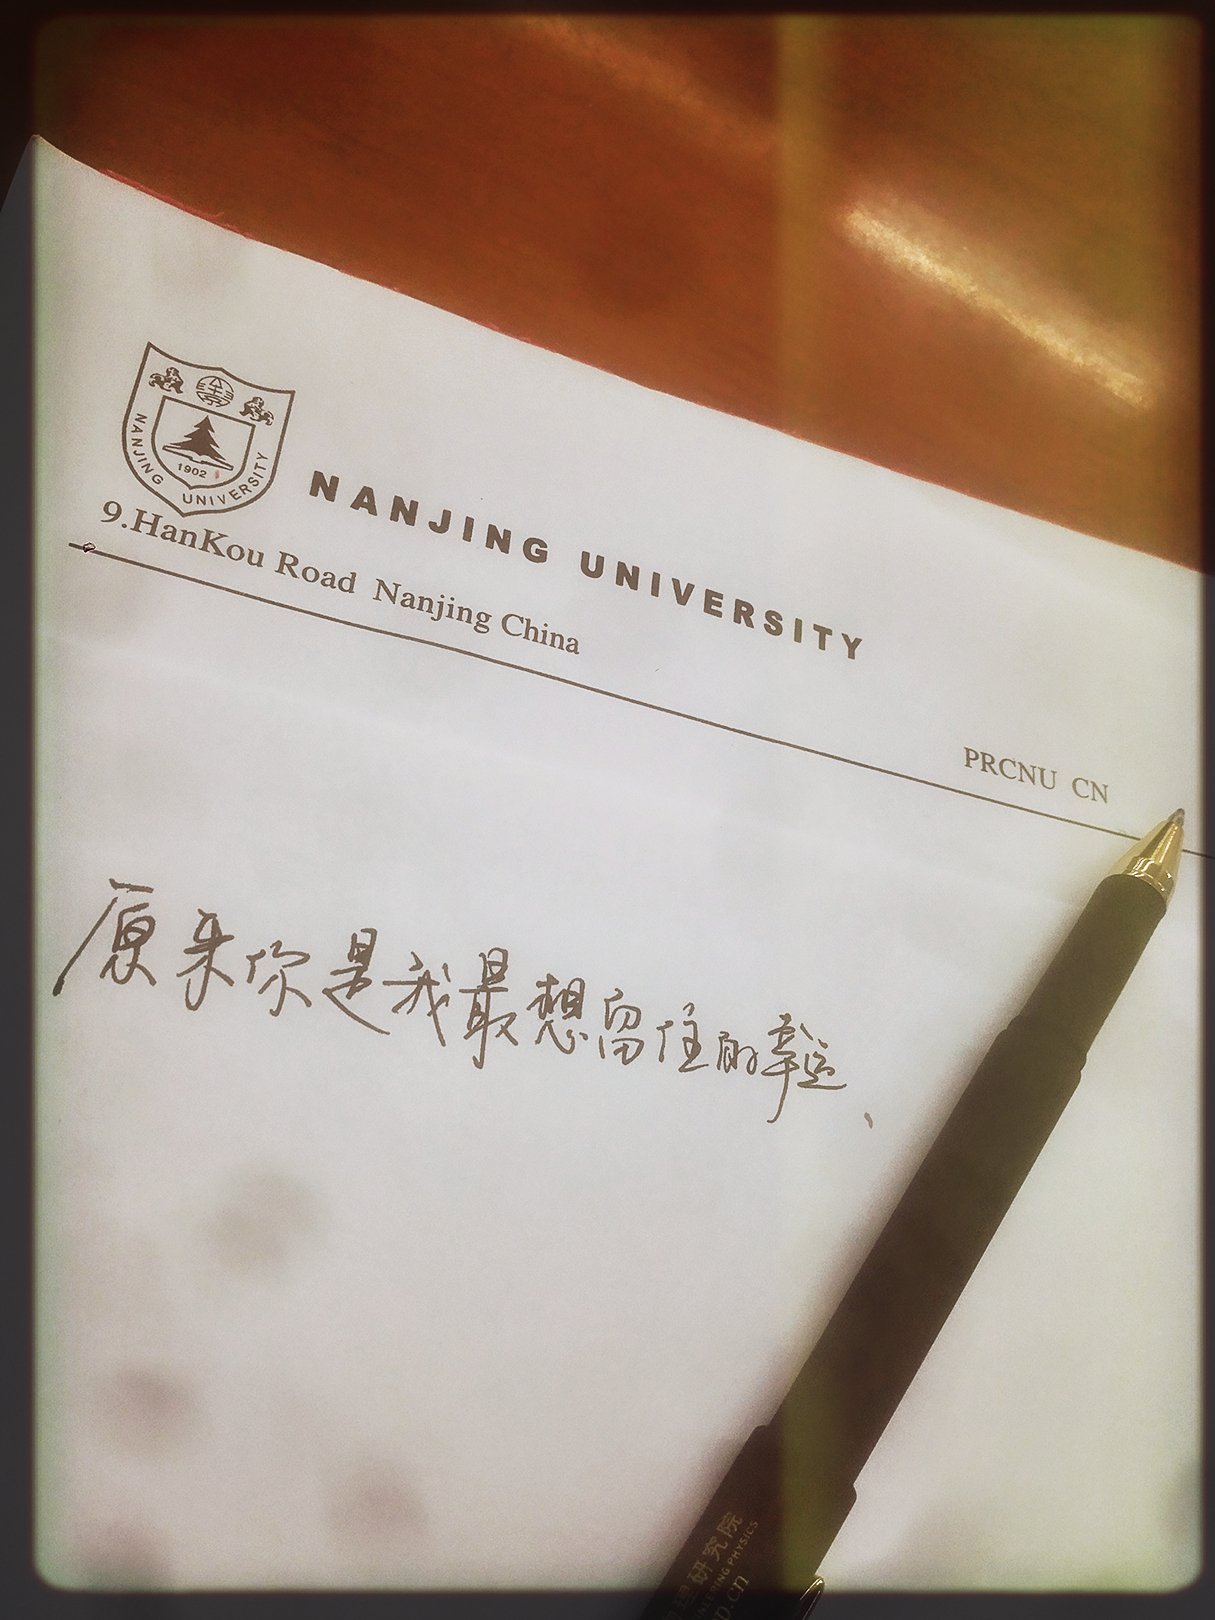 1902
NANJING UNIVERSITY
NANJING UNIVERSITY
9.HanKou Road Nanjing China
PRCNU CN
原来你是我最想留住的幸运、
理研究院
NEERING PHYSICS